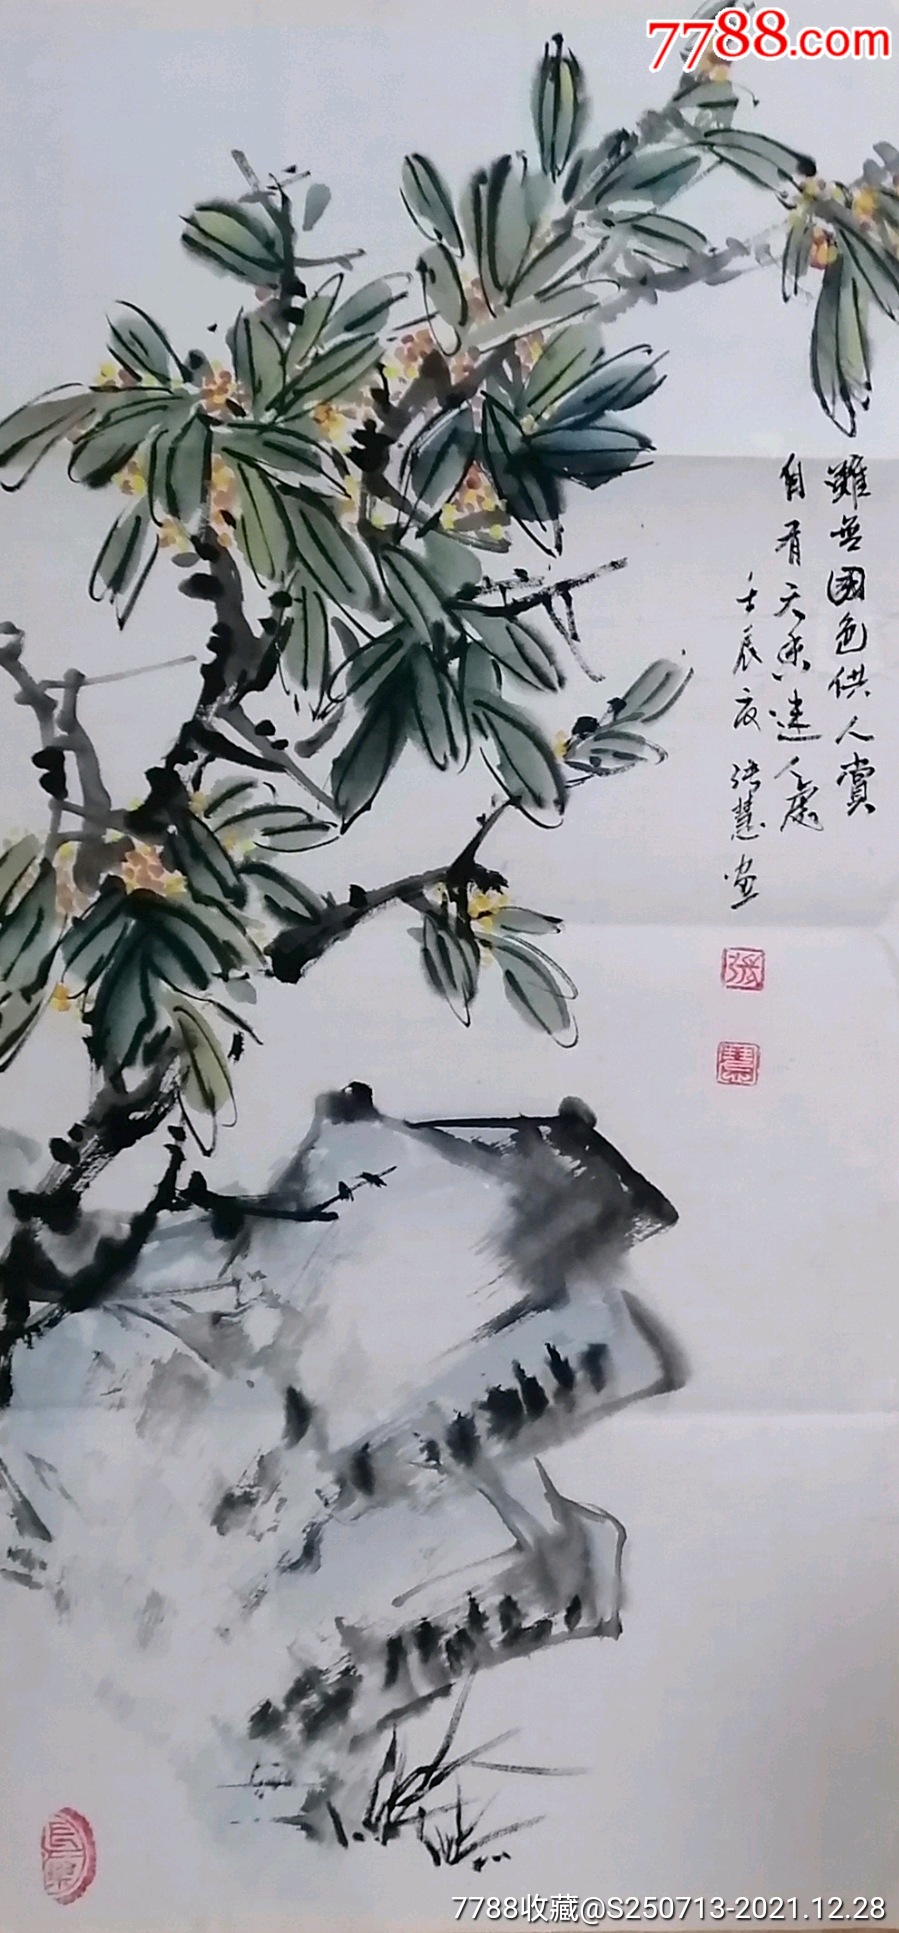 7788.com
雖無國色供人賞
自有天香迷人處
壬辰夏 張慧畫
張
慧
7788收藏@S250713-2021.12.28